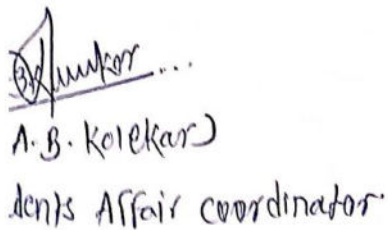 A.B. Kolekar)
dents Affair coordinator